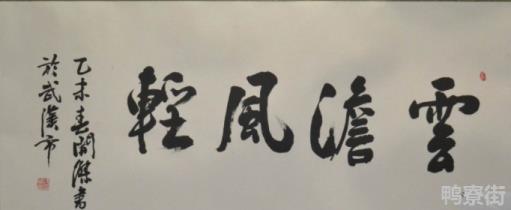 雲澹風輕
乙未春開傑書
於武漢市
鸭寮街